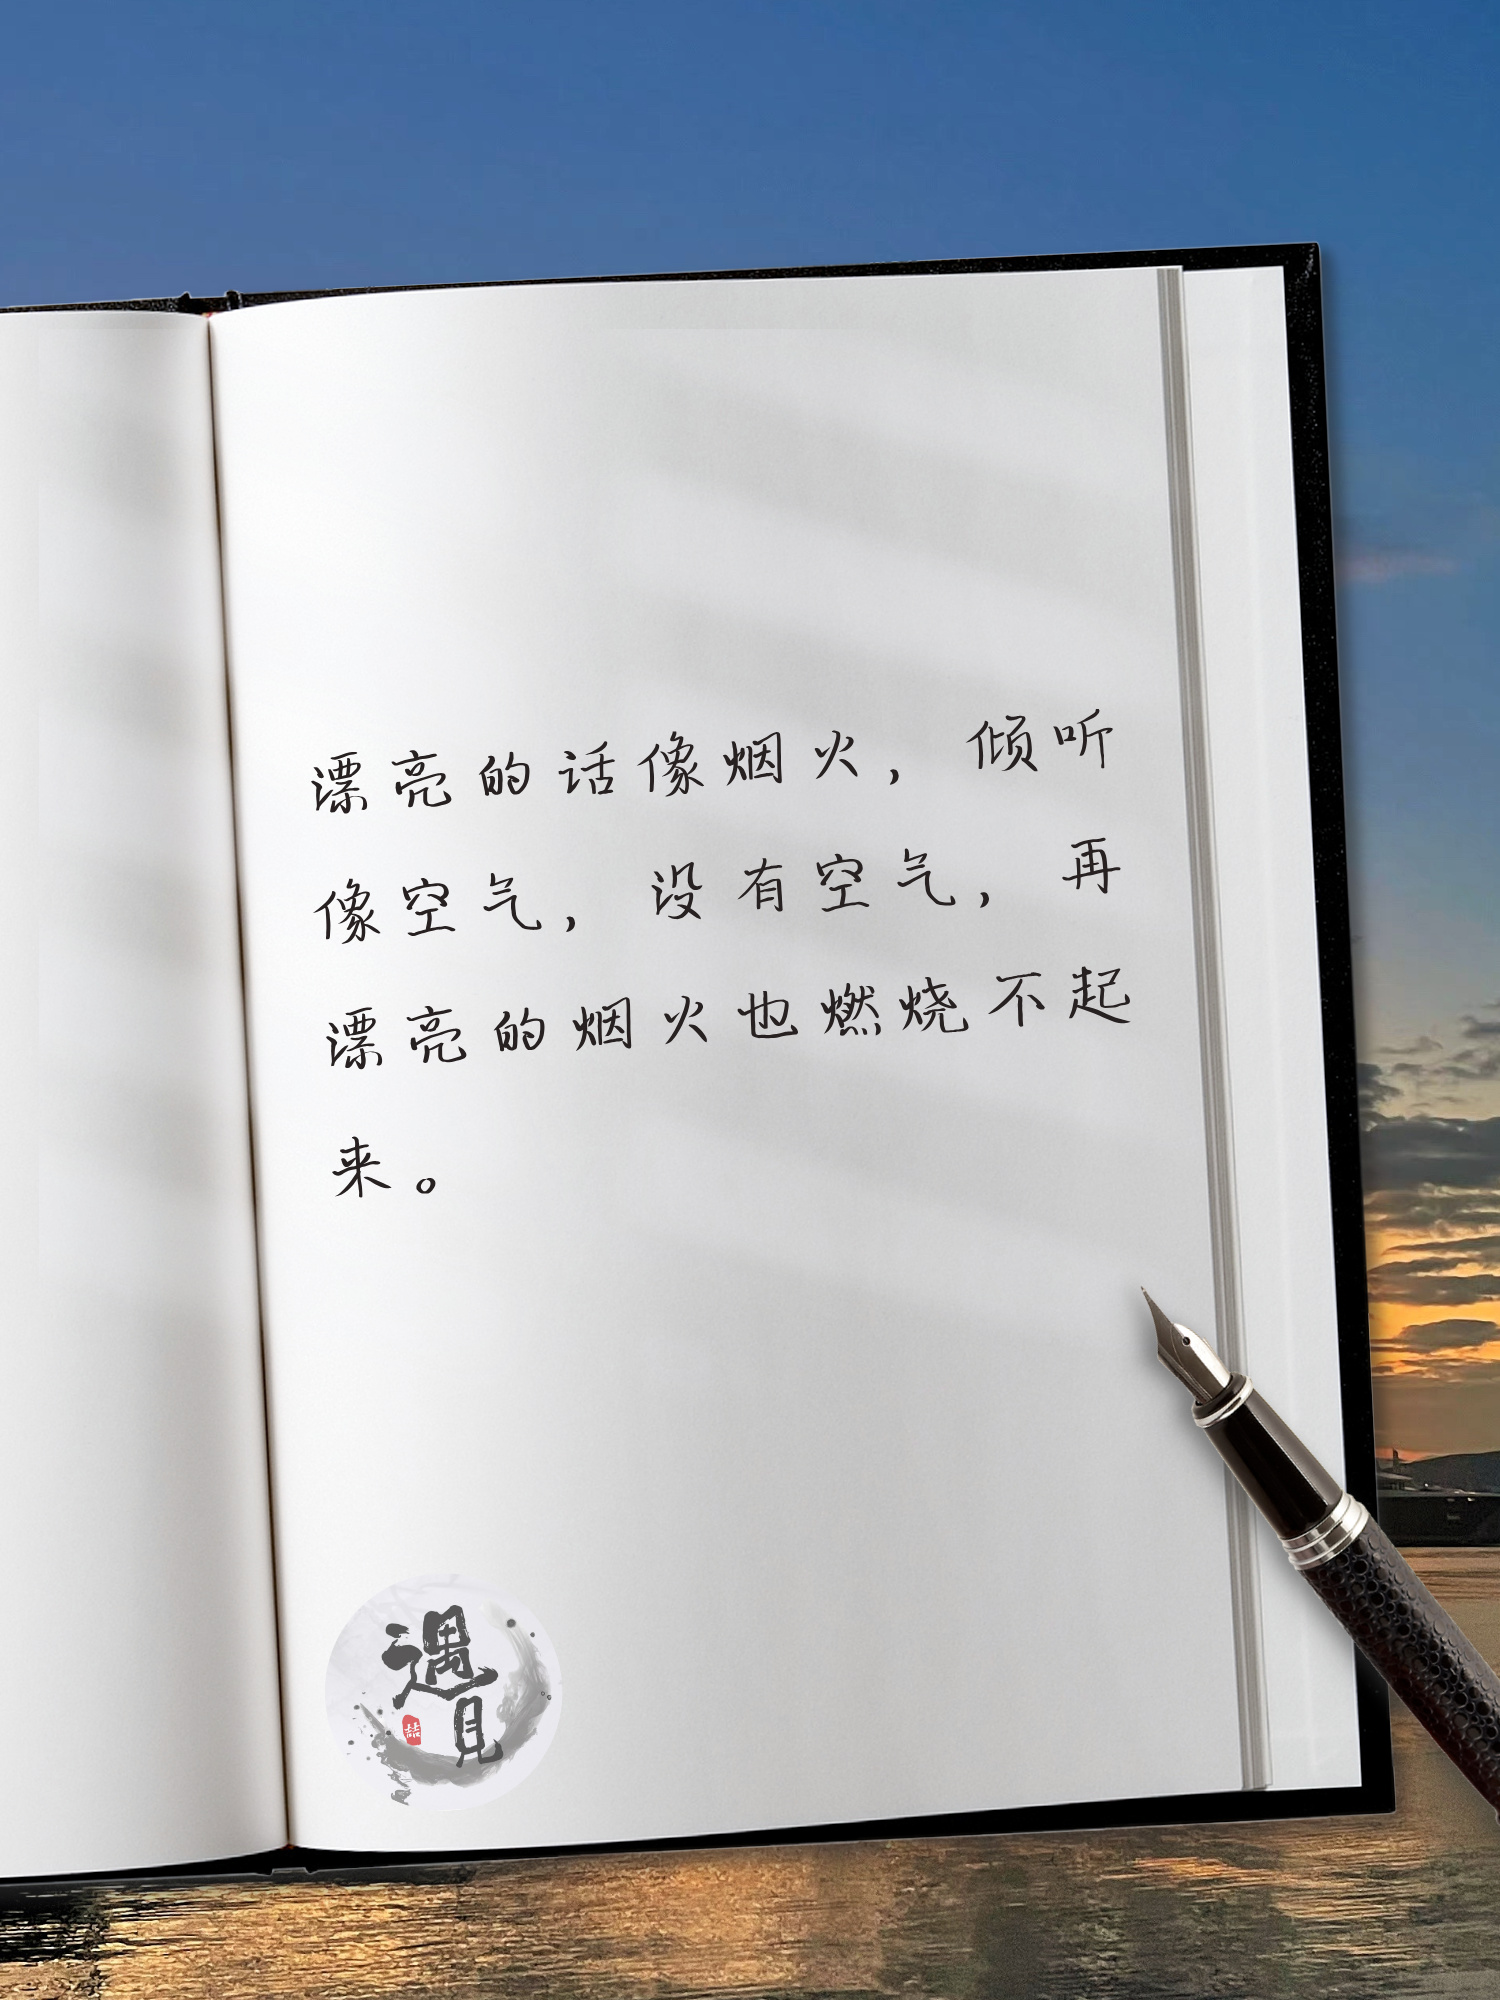 漂亮的话像烟火，倾听
像空气，没有空气，再
漂亮的烟火也燃烧不起
来。
遇
見
喆